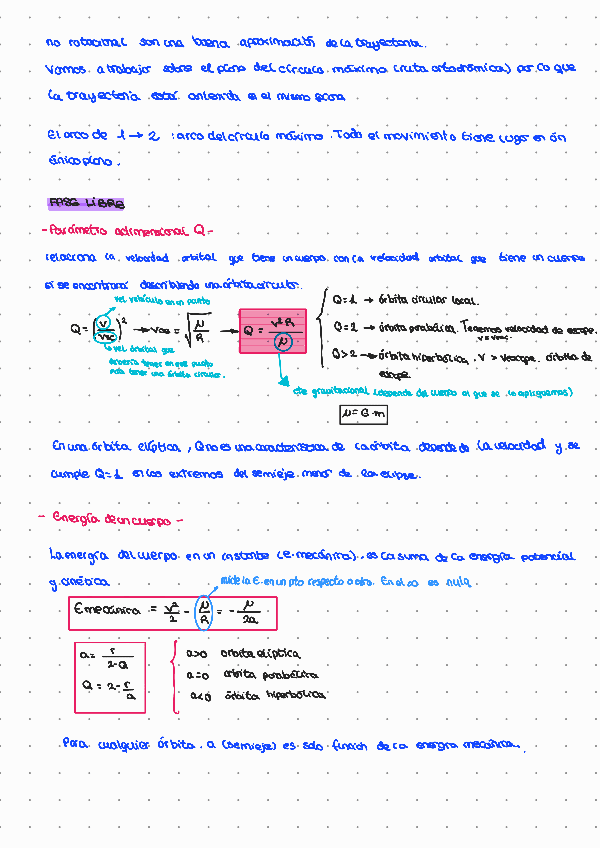 no rotacional son una buena aproximación de la trayectoria.
Vamos a trabajar sobre el plano del círculo máximo (ruta ortodrómica) por lo que
la trayectoria está contenida en el mismo plano.
El arco de 1 → 2 : arco del círculo máximo. Todo el movimiento tiene lugar en un
único plano.
FASE LIBRE
- Parámetro adimensional Q -
relaciona la velocidad orbital que tiene un cuerpo con la velocidad orbital que tiene un cuerpo
si se encontrara describiendo una órbita circular.
vel vehículo en un punto
Q = (V / Vco)² → Vco = √(μ/R) → Q = V²R / μ
vel orbital que
debería tener en ese punto
para tener una órbita circular.
Q=1 → órbita circular local.
Q=2 → órbita parabólica. Tenemos velocidad de escape.
V=Vesc.
Q>2 → órbita hiperbólica. V > Vescape. órbita de
escape.
cte gravitacional (depende del cuerpo al que se lo apliquemos)
μ = G·m
En una órbita elíptica, Q no es una característica de la órbita. depende de la velocidad y se
cumple Q=1 en los extremos del semieje menor de la elipse.
- Energía de un cuerpo -
La energía del cuerpo en un instante (e. mecánica), es la suma de la energía potencial
y cinética
mide la E. en un pto respecto a otro. En el ∞ es nula
Emecánica = V²/2 - μ/R = - μ/2a
a = r / 2-Q
Q = 2 - r/a
a>0 órbita elíptica
a=∞ órbita parabólica
a<0 órbita hiperbólica
Para cualquier órbita a (semieje) es solo función de la energía mecánica.